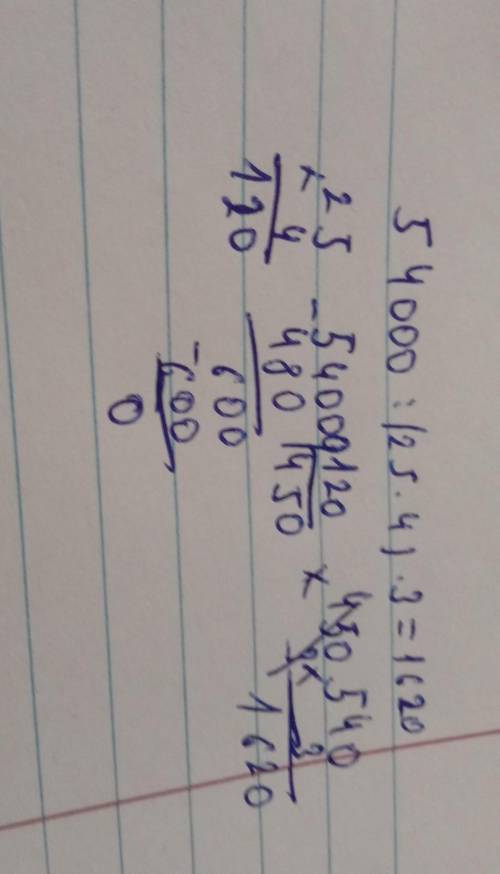 54000:(25·4)·3=1620
×25
4
120
-54000|120
480 |450
600
-600
0
×450
540
×3
1620